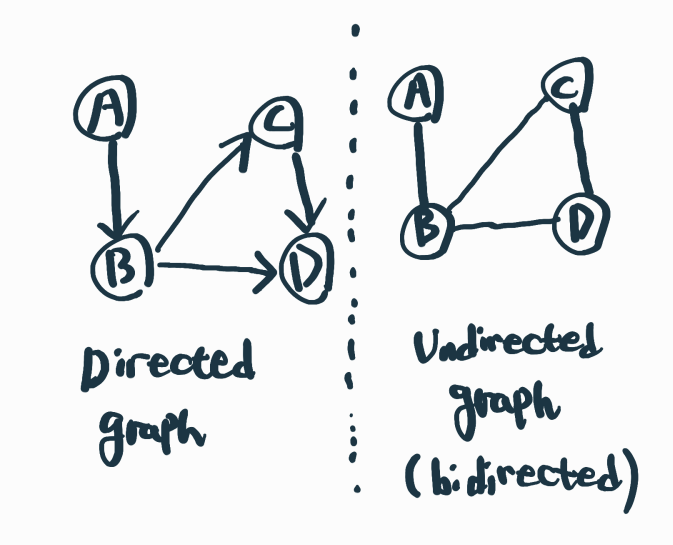 A
C
B
D
Directed
graph
A
C
B
D
Undirected
graph
(bidirected)